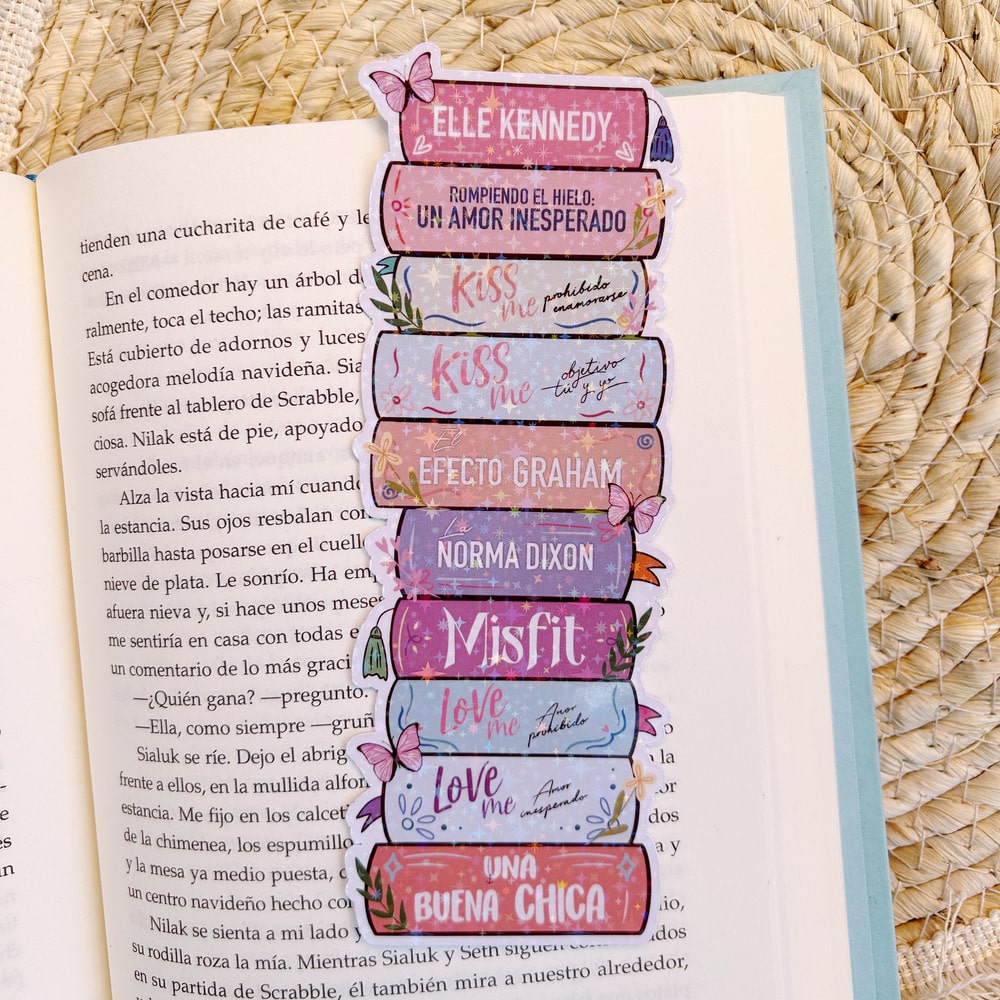 tienden una cucharita de café y le
cena.
En el comedor hay un árbol d
ralmente, toca el techo; las ramitas
Está cubierto de adornos y luces
acogedora melodía navideña. Sia
sofá frente al tablero de Scrabble,
ciosa. Nilak está de pie, apoyado
servándoles.
Alza la vista hacia mí cuando
la estancia. Sus ojos resbalan con
barbilla hasta posarse en el cuell
nieve de plata. Le sonrío. Ha em
afuera nieva y, si hace unos meses
me sentiría en casa con todas e
un comentario de lo más graci
—¿Quién gana? —pregunto.
—Ella, como siempre —gruñ
Sialuk se ríe. Dejo el abrig
frente a ellos, en la mullida alfon
estancia. Me fijo en los calcet
de la chimenea, los espumillo
y la mesa ya medio puesta,
un centro navideño hecho co
Nilak se sienta a mi lado y
su rodilla roza la mía. Mientras Sialuk y Seth siguen
en su partida de Scrabble, él también mira a nuestro alrededor,
la
or
dos
a y
io,
dos
ELLE KENNEDY
ROMPIENDO EL HIELO:
UN AMOR INESPERADO
Kiss me prohibido enamorarse
Kiss me objetivo tú y yo
El
EFECTO GRAHAM
La
NORMA DIXON
Misfit
Love me Amor prohibido
Love me Amor inesperado
UNA
BUENA CHICA